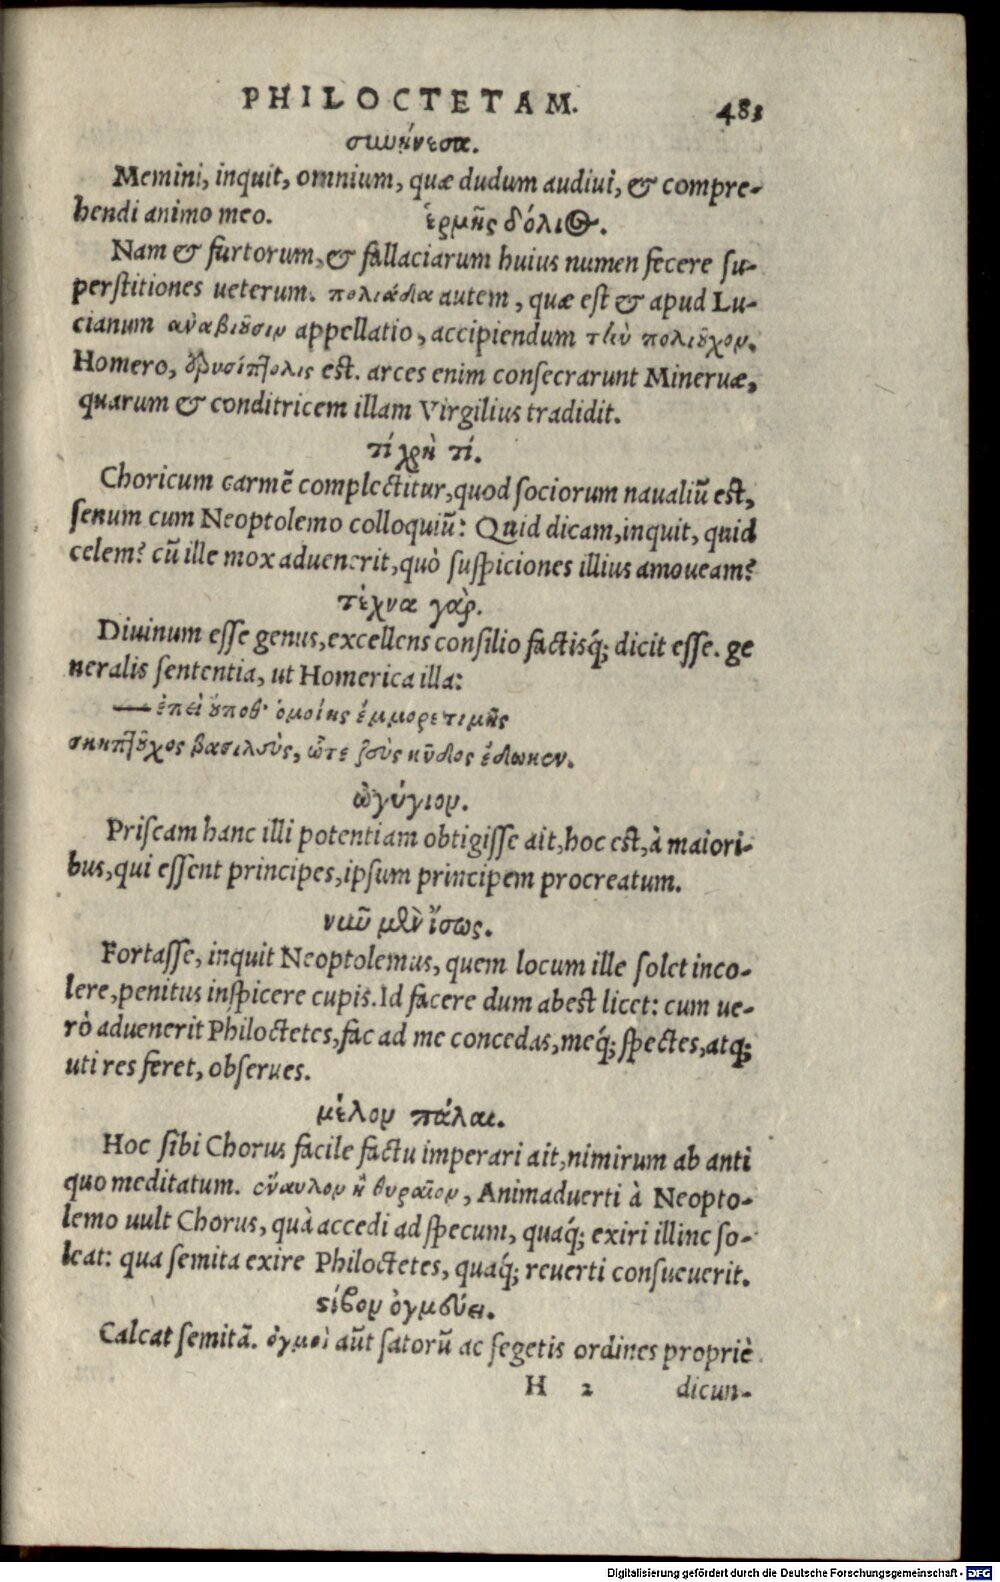 PHILOCTETAM. 483
συνῄνεσα.
Memini, inquit, omnium, quæ dudum audiui, & compre-
hendi animo meo. ἑρμῆς δόλιος.
Nam & furtorum, & fallaciarum huius numen fecere su-
perstitiones ueterum. πολιάδα autem, quæ est & apud Lu-
cianum ἀναβιοῦσιν appellatio, accipiendum τὴν πολιοῦχον.
Homero, ἐρυσίπτολις est. arces enim consecrarunt Mineruæ,
quarum & conditricem illam Virgilius tradidit.
τί χρὴ τί.
Choricum carmē complectitur, quod sociorum naualiū est,
senum cum Neoptolemo colloquiū: Quid dicam, inquit, quid
celem? cū ille mox aduenerit, quò suspiciones illius amoueam?
τέχνα γὰρ.
Diuinum esse genus, excellens consilio factisq́; dicit esse. ge
neralis sententia, ut Homerica illa:
— ἐπεὶ οὔποθ' ὁμοίης ἔμμορε τιμῆς
σκηπτοῦχος βασιλεὺς, ᾧτε ζεὺς κῦδος ἔδωκεν.
ὠγύγιον.
Priscam hanc illi potentiam obtigisse ait, hoc est, à maiori-
bus, qui essent principes, ipsum principem procreatum.
νῦν μὲν ἴσως.
Fortasse, inquit Neoptolemus, quem locum ille solet inco-
lere, penitus inspicere cupis. Id facere dum abest licet: cum ue-
rò aduenerit Philoctetes, fac ad me concedas, meq́; spectes, atq;
uti res feret, obserues.
μέλον πάλαι.
Hoc sibi Chorus facile factu imperari ait, nimirum ab anti
quo meditatum. οὔναυλον ἢ θυραῖον, Animaduerti à Neopto-
lemo uult Chorus, quà accedi ad specum, quaq́; exiri illinc so-
leat: qua semita exire Philoctetes, quaq́; reuerti consueuerit.
στίβον ὀγμεύει.
Calcat semitā. ὀγμοὶ aūt satorū ac segetis ordines propriè
H 2 dicun-
Digitalisierung gefördert durch die Deutsche Forschungsgemeinschaft - DFG